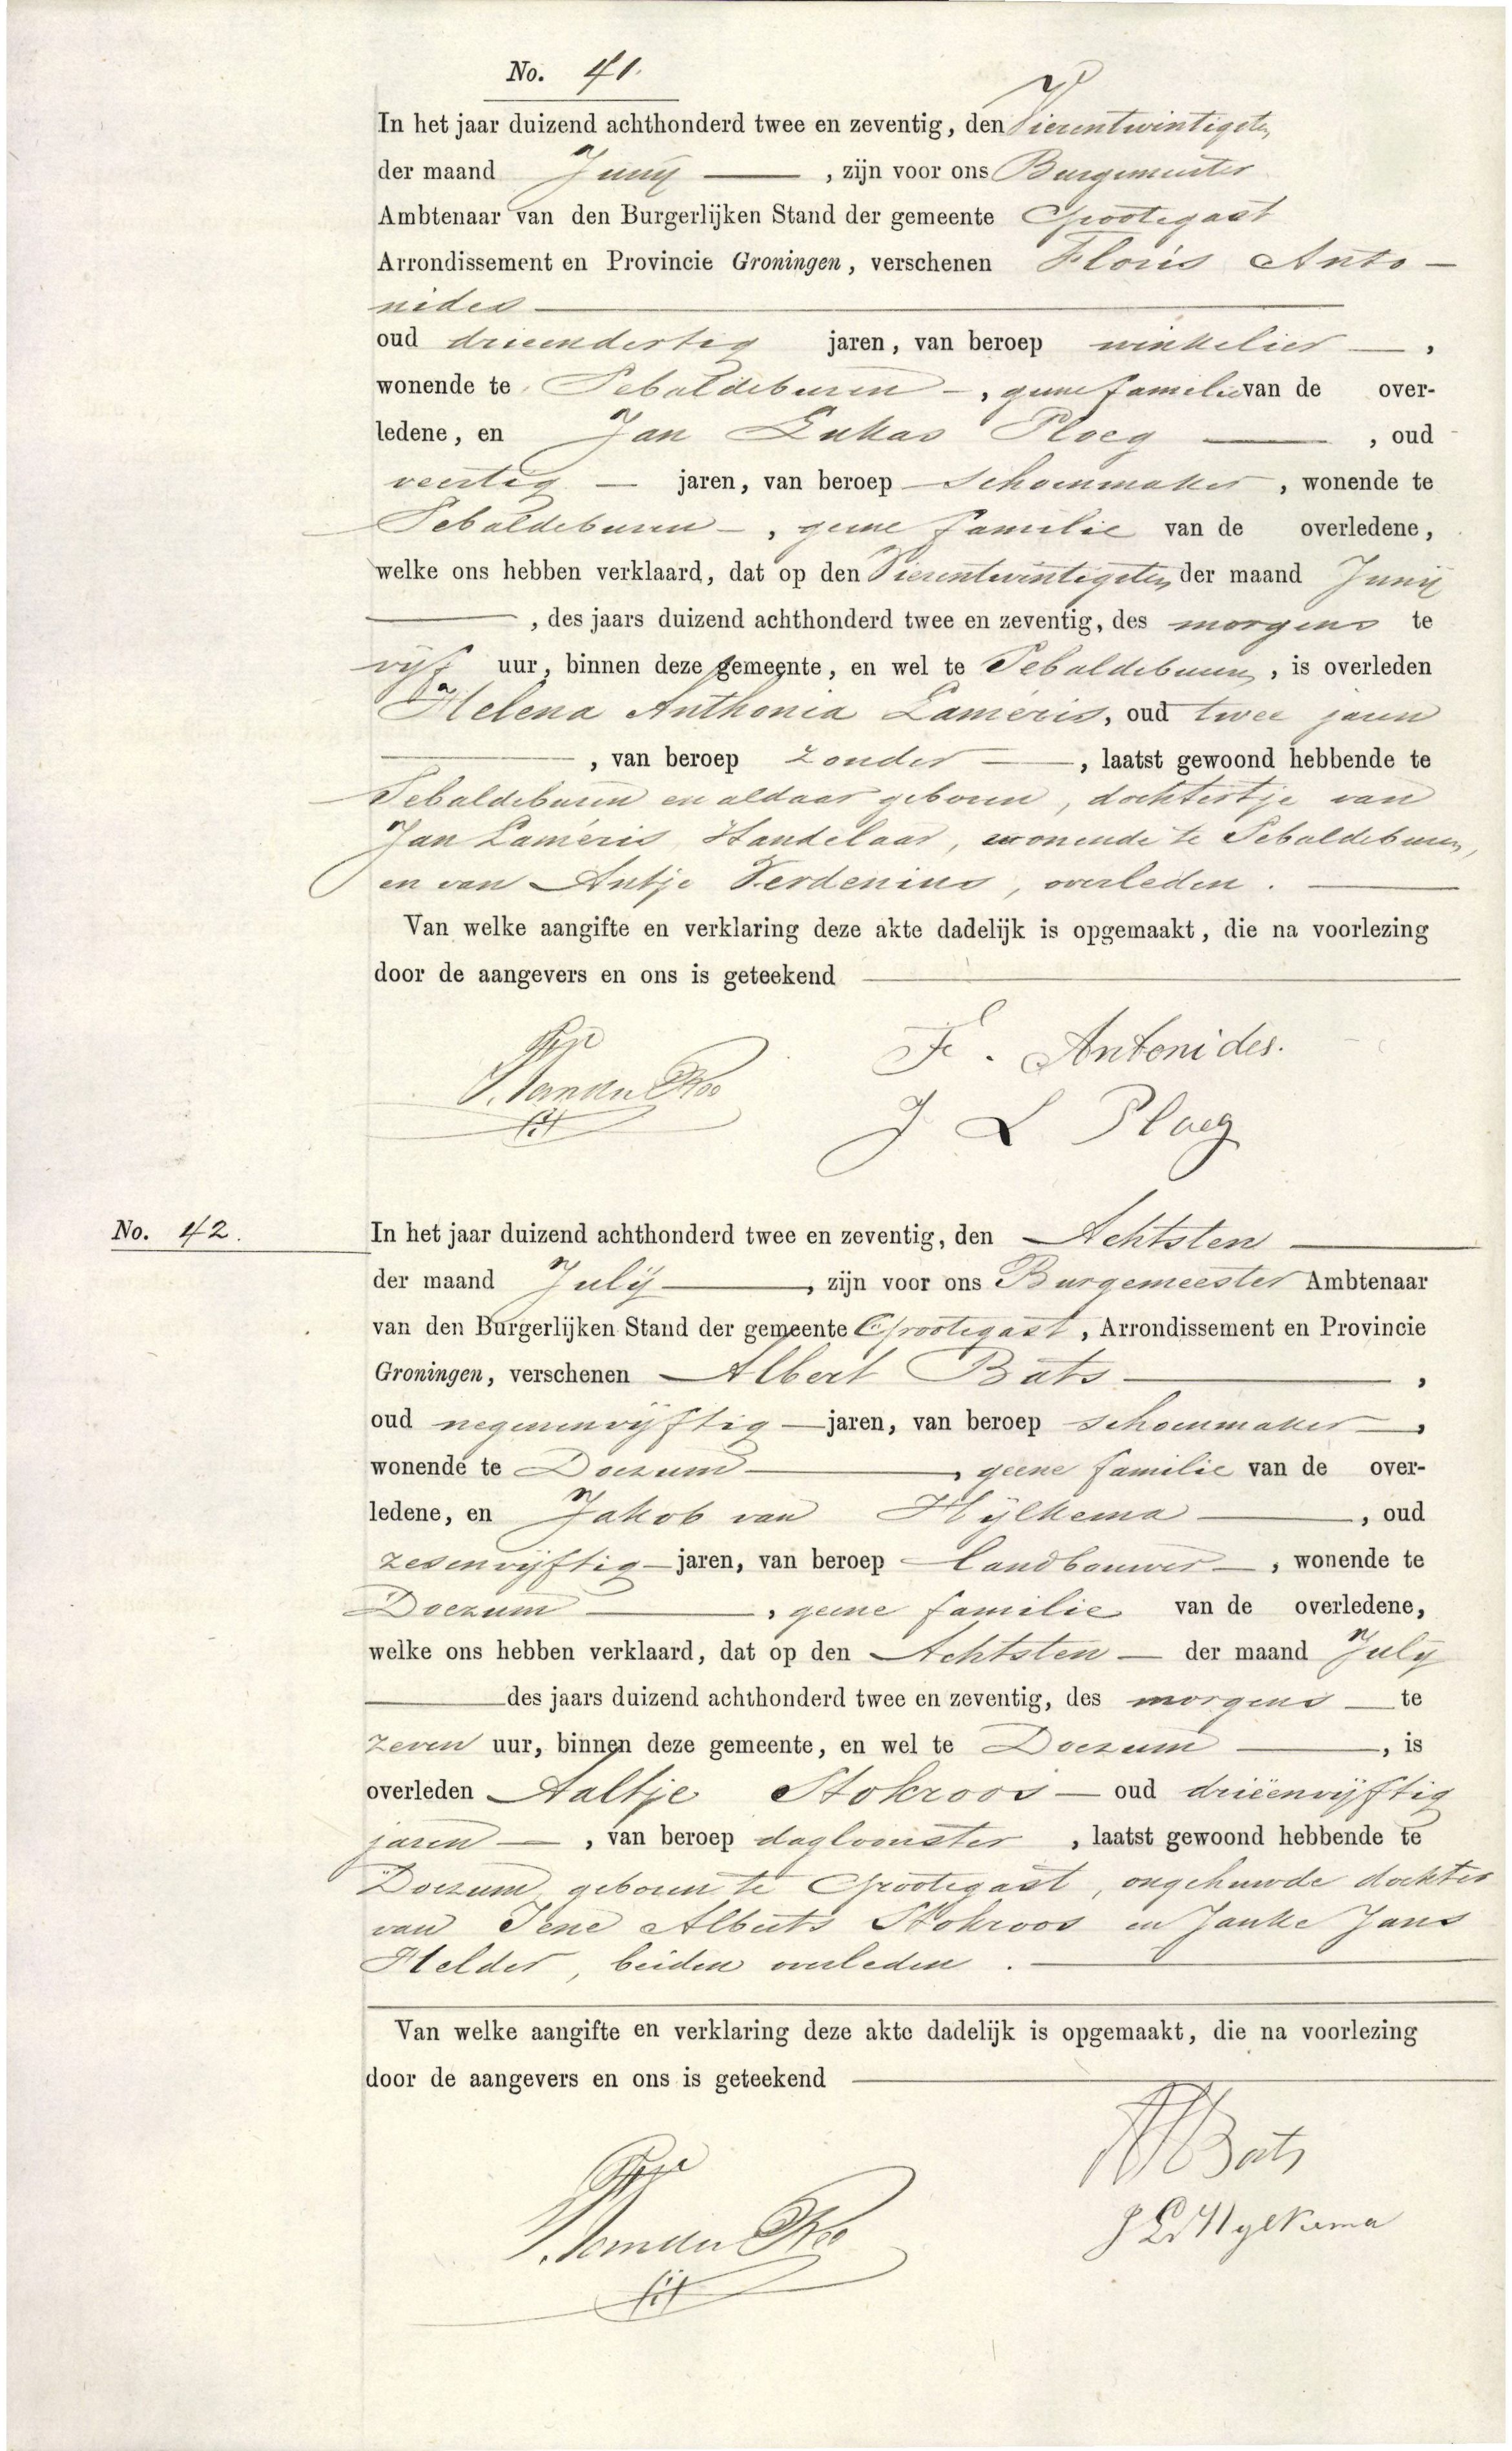 No. 41.
In het jaar duizend achthonderd twee en zeventig, den Vierentwintigsten
der maand Junij, zijn voor ons Burgemeester
Ambtenaar van den Burgerlijken Stand der gemeente Grootegast
Arrondissement en Provincie Groningen, verschenen Floris Anto-
nides
oud drieendertig jaren, van beroep winkelier,
wonende te Sebaldeburen, geene familie van de over-
ledene, en Jan Lukas Ploeg, oud
veertig jaren, van beroep Schoenmaker, wonende te
Sebaldeburen, geene familie van de overledene,
welke ons hebben verklaard, dat op den Vierentwintigsten der maand Junij
, des jaars duizend achthonderd twee en zeventig, des morgens te
vijf uur, binnen deze gemeente, en wel te Sebaldeburen, is overleden
Helena Anthonia Lameris, oud twee jaren
, van beroep zonder, laatst gewoond hebbende te
Sebaldeburen en aldaar geboren, dochtertje van
Jan Lameris, Handelaar, wonende te Sebaldeburen,
en van Antje Verdenius, overleden.
Van welke aangifte en verklaring deze akte dadelijk is opgemaakt, die na voorlezing
door de aangevers en ons is geteekend
F. Antonides.
J L Ploeg
No. 42.
In het jaar duizend achthonderd twee en zeventig, den Achtsten
der maand Julij, zijn voor ons Burgemeester Ambtenaar
van den Burgerlijken Stand der gemeente Grootegast, Arrondissement en Provincie
Groningen, verschenen Albert Bats,
oud negenenvijftig jaren, van beroep schoenmaker,
wonende te Doezum, geene familie van de over-
ledene, en Jakob van Hijlkema, oud
zesenvijftig jaren, van beroep Landbouwer, wonende te
Doezum, geene familie van de overledene,
welke ons hebben verklaard, dat op den Achtsten der maand July
des jaars duizend achthonderd twee en zeventig, des morgens te
zeven uur, binnen deze gemeente, en wel te Doezum, is
overleden Aaltje Stokroos oud drieënvijftig
jaren, van beroep dagloonster, laatst gewoond hebbende te
Doezum, geboren te Grootegast, ongehuwde dochter
van Sene Alberts Stokroos en Janke Jans
Helder, beiden overleden.
Van welke aangifte en verklaring deze akte dadelijk is opgemaakt, die na voorlezing
door de aangevers en ons is geteekend
A Bats
Hylkema